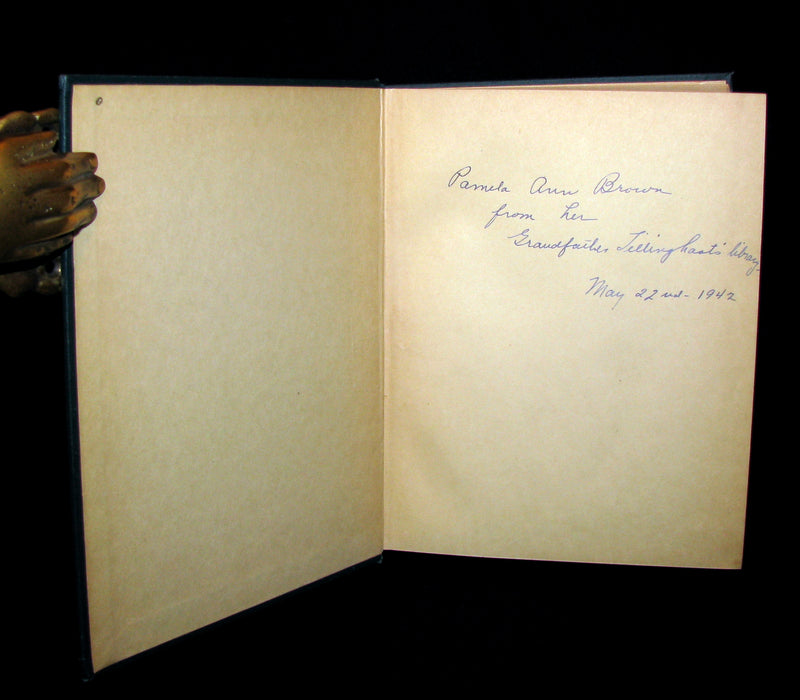 Pamela Ann Brown
from her
Grandfather Tillinghast's library.
May 22nd - 1942